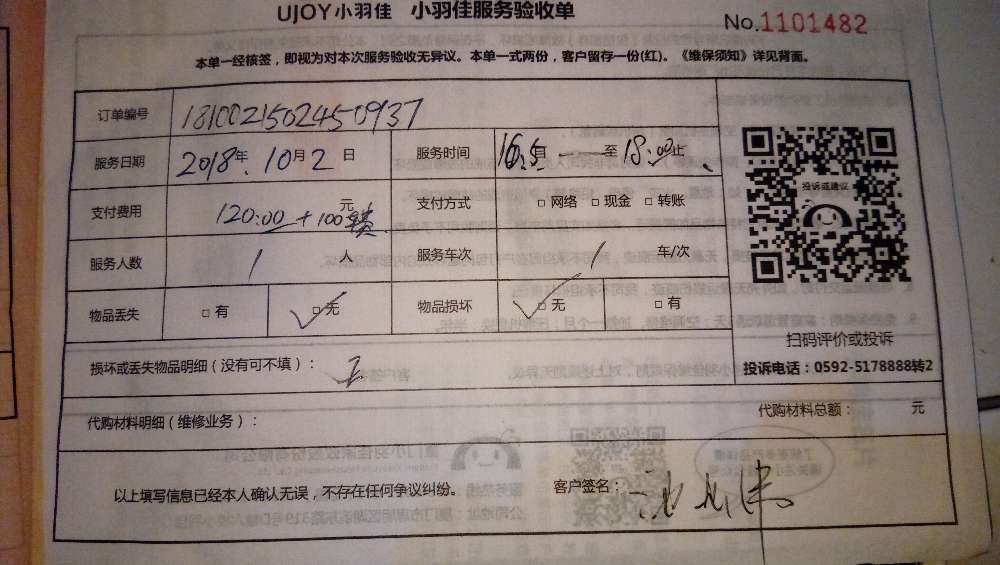 UJOY小羽佳 小羽佳服务验收单
No.1101482
本单一经核签，即视为对本次服务验收无异议。本单一式两份，客户留存一份(红)。《维保须知》详见背面。
订单编号 1810021502450937
服务日期 2018年10月2日 服务时间 至18:00止
支付费用 120:00+100 元 支付方式 □网络 □现金 □转账
服务人数 1 人 服务车次 1 车/次
物品丢失 □有 □无 物品损坏 □无 □有
投诉或建议
扫码评价或投诉
投诉电话：0592-5178888转2
损坏或丢失物品明细（没有可不填）：无
代购材料明细（维修业务）： 代购材料总额： 元
以上填写信息已经本人确认无误，不存在任何争议纠纷。 客户签名：